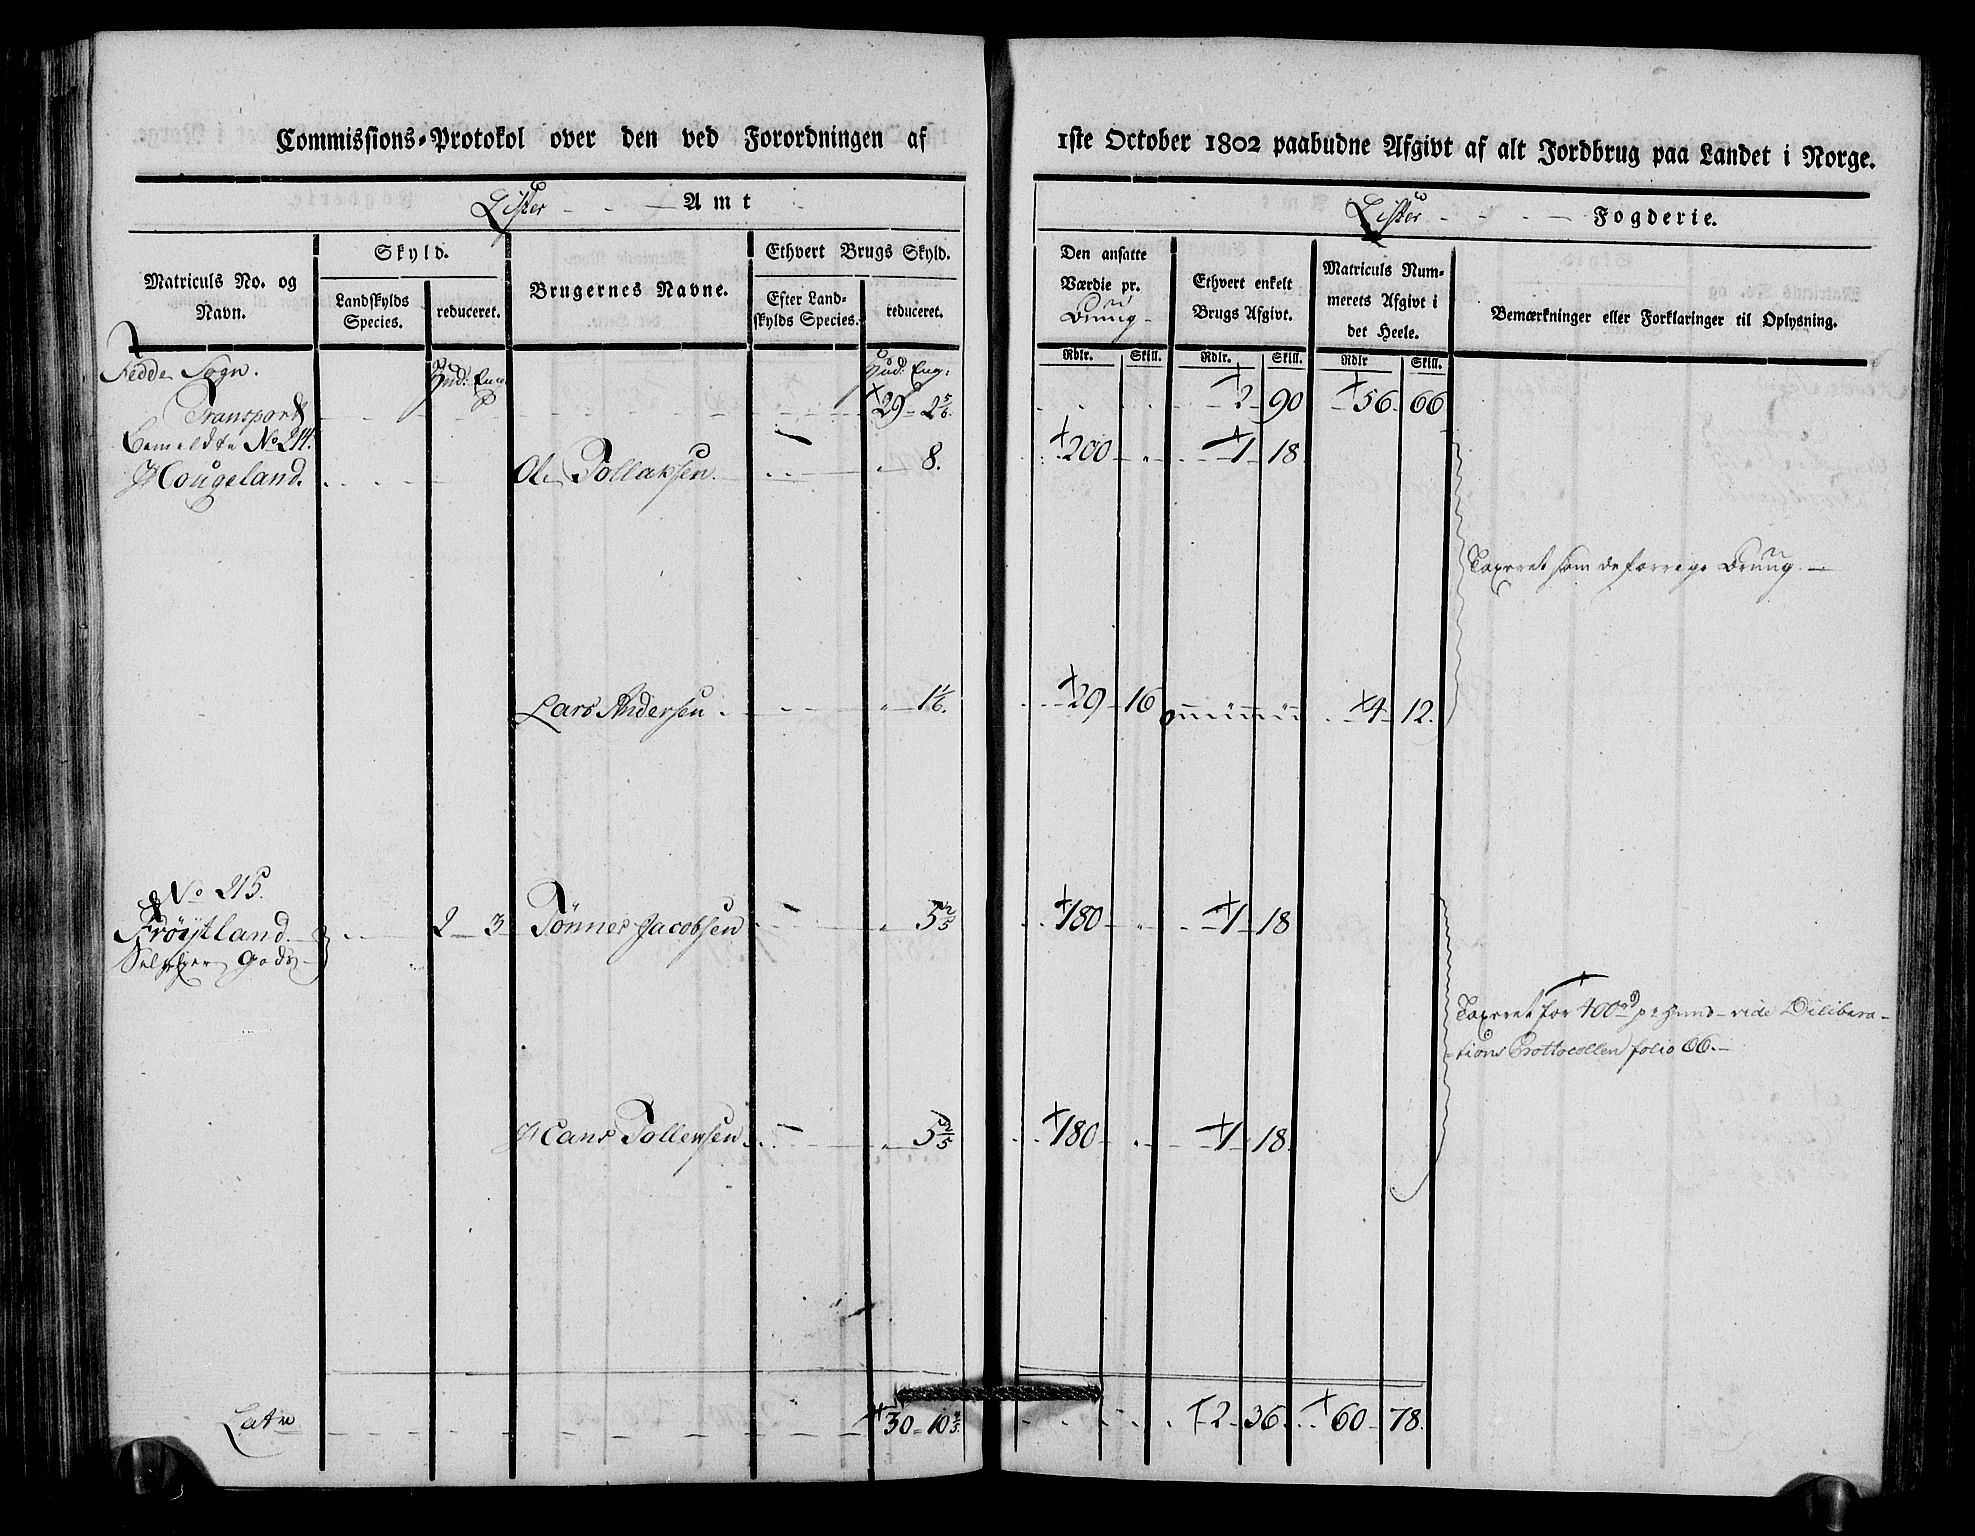 Commissions-Protokol over den ved Forordningen af
Lister Amt
Matriculs No. og Navn.
Skyld.
Landskylds Species.
reduceret.
Brugernes Navne.
Ethvert Brugs Skyld.
Efter Landskylds Species.
reduceret.
Fedde Sogn.
Hud. Eng:
Hud. Eng:
Transport
29 - 2 5/6.
Bemeldte No 214.
Hougeland.
Ole Tollaksen.
8.
Lars Andersen
1 1/6.
No 215.
Frøÿtland.
Gods
2 - 3
Tønnes Jacobsen
5 2/5
Hans Tollevsen
5 2/5
Latus
30 - 10 4/5.
1ste October 1802 paabudne Afgivt af alt Jordbrug paa Landet i Norge.
Lister Fogderie.
Den ansatte Værdie pr. Bruug
Ethvert enkelt Brugs Afgivt.
Matriculs Nummerets Afgivt i det Heele.
Bemærkninger eller Forklaringer til Oplysning.
Rdlr. Skill. Rdlr. Skill. Rdlr Skill.
2 - 90 56 - 66
200 1 - 18
Taxeret som de forrige Bruug.
29 - 16 4 - 12.
180 1 - 18
Taxeret for 400 rd pr Hund vide Delibera-
-tions Prottocollen folio 66.
180 1 - 18.
2 - 36. 60 - 78.